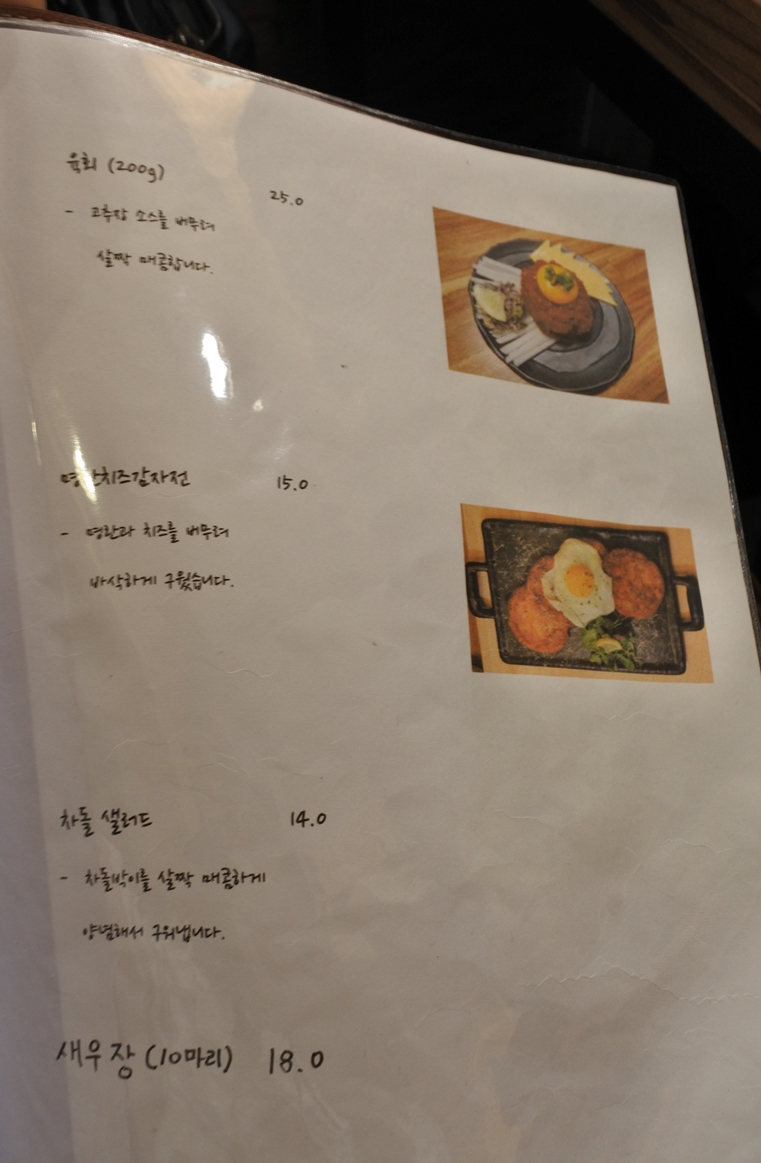 육회 (200g)
25.0
- 고추장 소스를 버무려
살짝 매콤합니다.
명란치즈감자전 15.0
- 명란과 치즈를 버무려
바삭하게 구웠습니다.
차돌 샐러드 14.0
- 차돌박이를 살짝 매콤하게
양념해서 구워냅니다.
새우장 (10마리) 18.0